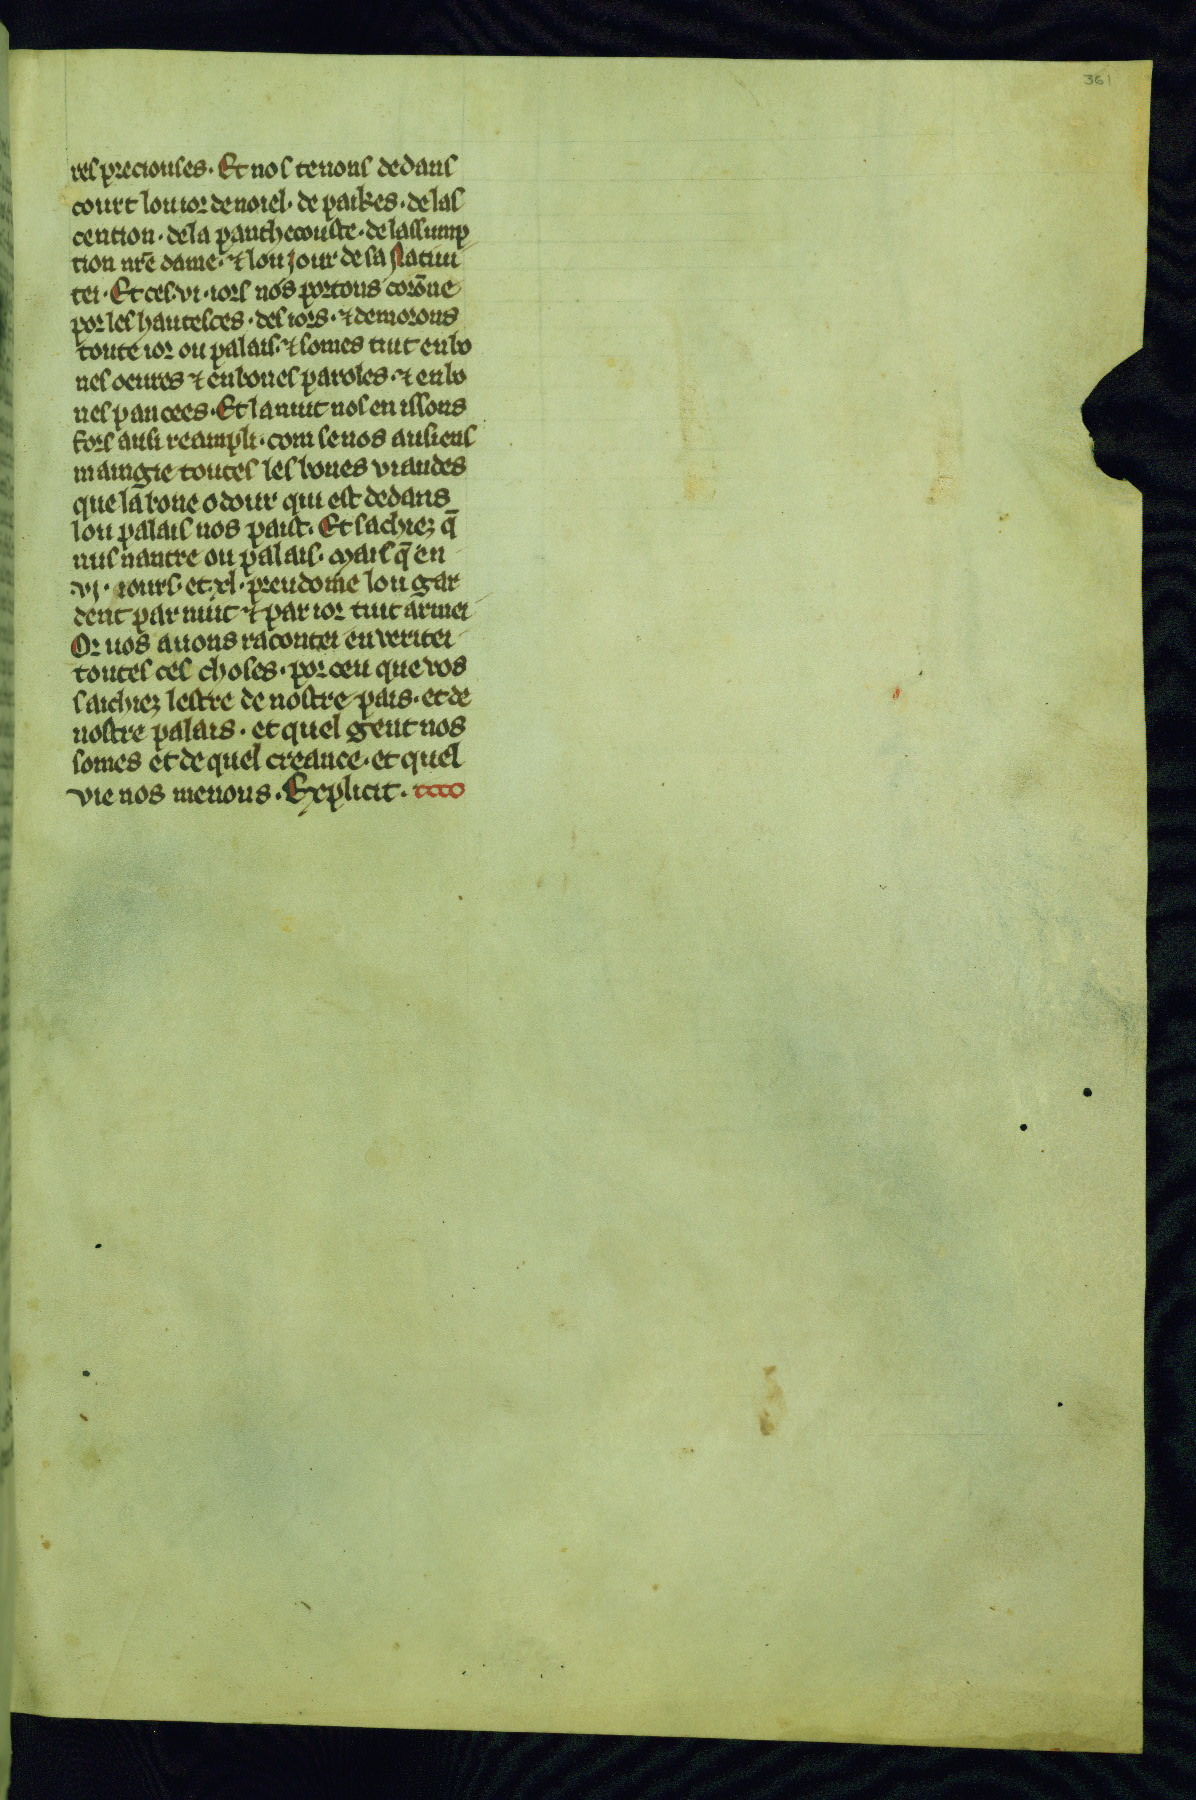 361
res preciouses. Et nos tenons dedans
court lou ior de noiel. de paikes. de las
cention. de la panthecouste. de lassump
tion nr̄e dame. ⁊ lou jour de sa Natiui
tei. Et ces .vi. iors nos portons corōne
por les hautesces. des iors. ⁊ demorons
toute ior ou palais. ⁊ somes tuit en bo
nes oeures ⁊ en bones paroles. ⁊ en bo
nes pancees. Et la nuit nos en issons
fors ausi reampli. com se nos ausiens
maingie toutes les bones viandes
que la bone odour qui est dedans
lou palais nos paist. Et sachiez q̄
nus nantre ou palais. Mais q̄ en
.vj. iours. et .xl. preudome lou gar
dent par nuit ⁊ par ior tuit armei
Or uos auons racontei en veritei
toutes ces choses. por ceu que vos
saichiez lestre de nostre pais. et de
nostre palais. et quel gent nos
somes et de quel creance. et quel
vie nos menons. Explicit.